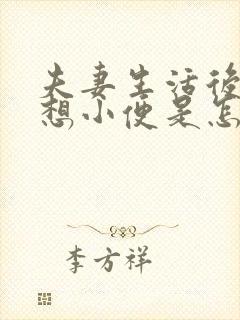 夫妻生活後
想小便是怎
李方祥